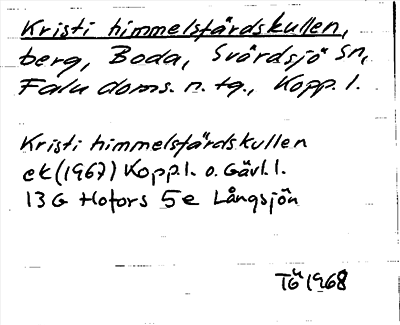 Kristi himmelsfärdskullen,
berg, Boda, Svärdsjö sn,
Falu doms. n. tg., Kopp. l.
Kristi himmelsfärdskullen
ek (1967) Kopp.l. o. Gävl. l.
13 G Hofors 5 e Långsjön
TG 1968